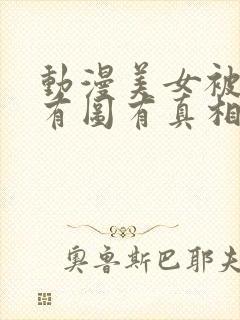 動漫美女被
有圖有真相
奧魯斯巴耶夫